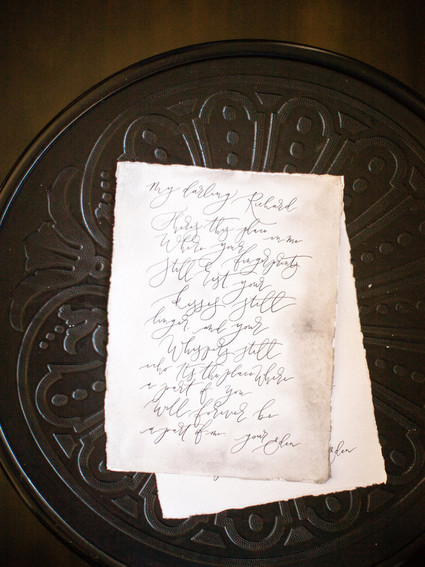 My darling Richard
There's this place in me
Where your
fingerprints
still rest your
kisses still
linger and your
Whispers still
echo It's the place Where
a part of you
Will forever be
a part of me. your Eden
Eden